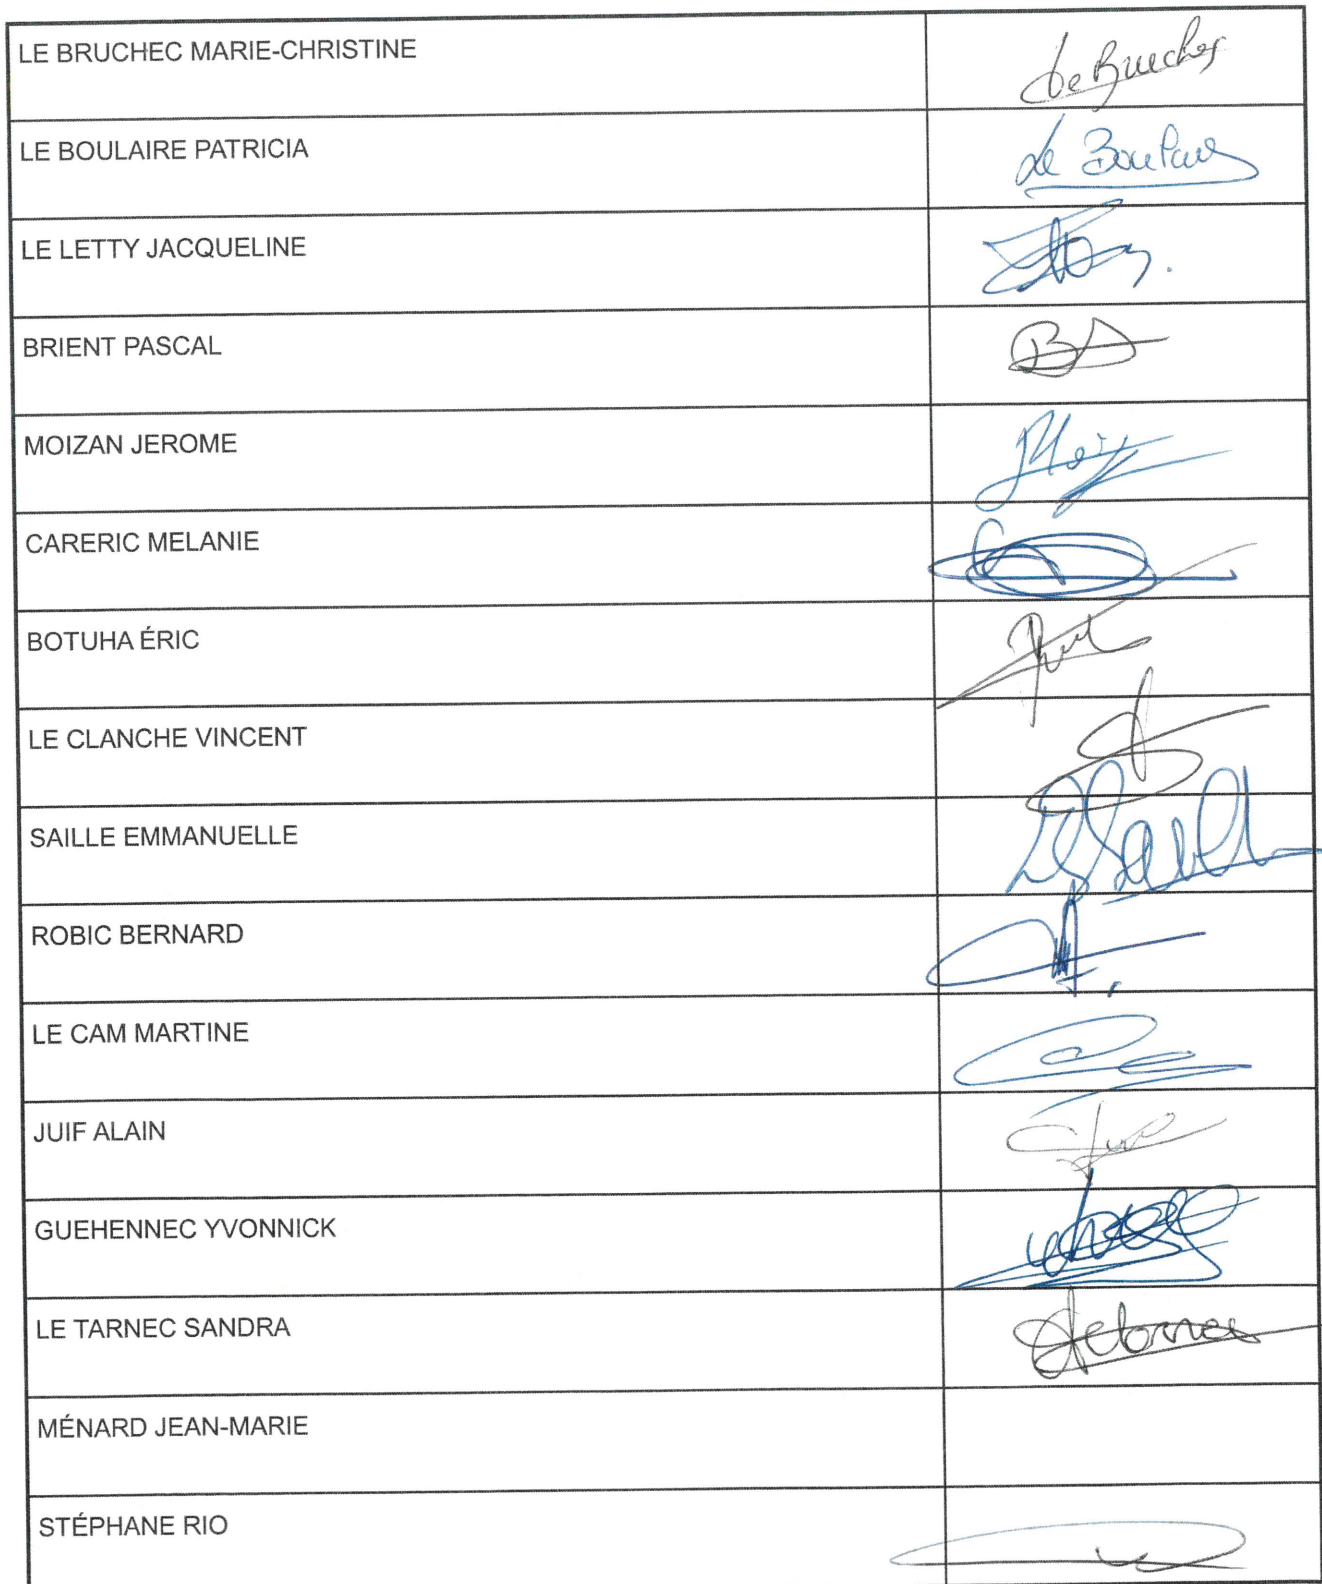 LE BRUCHEC MARIE-CHRISTINE
Le Bruchec
LE BOULAIRE PATRICIA
Le Boulaire
LE LETTY JACQUELINE
BRIENT PASCAL
MOIZAN JEROME
CARERIC MELANIE
BOTUHA ÉRIC
LE CLANCHE VINCENT
SAILLE EMMANUELLE
ROBIC BERNARD
LE CAM MARTINE
JUIF ALAIN
GUEHENNEC YVONNICK
LE TARNEC SANDRA
MÉNARD JEAN-MARIE
STÉPHANE RIO